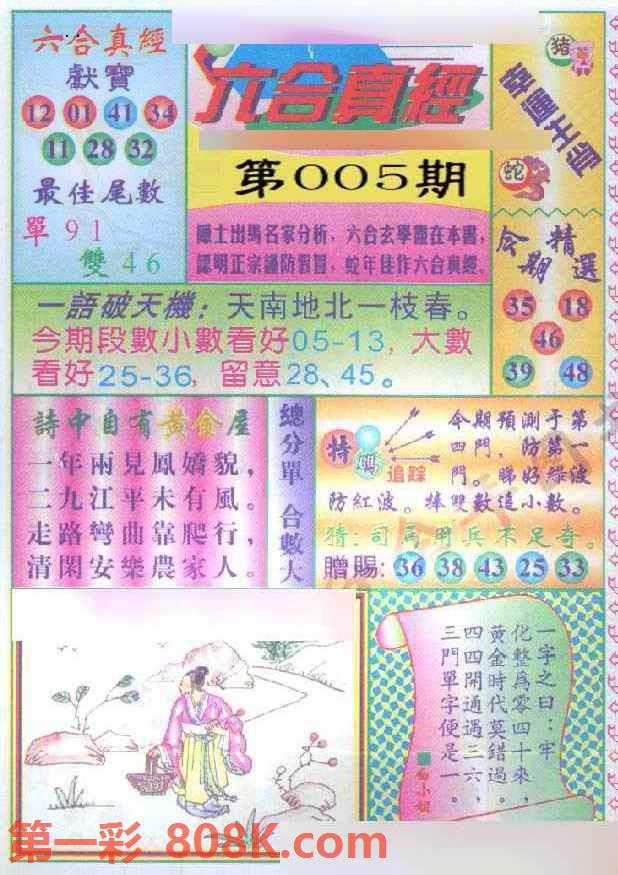 六合真經
獻寶
12 01 41 34
11 28 32
最佳尾數
單91
雙46
六合真經
第005期
隱士出馬名家分析，六合玄學盡在本書，
認明正宗謹防假冒，蛇年佳作六合真經。
猪
蛇
今期精選
35 18
46
39 48
一語破天機：天南地北一枝春。
今期段數小數看好05-13，大數
看好25-36，留意28、45。
詩中自有黃金屋
一年兩見鳳嬌貌，
二九江平未有風。
走路彎曲靠爬行，
清閑安樂農家人。
總分單 合數大
特碼
追踪
今期預測于第
四門，防第一
門。睇好綠波
防紅波。捧雙數追小數。
猜：司馬用兵不足奇。
贈賜：36 38 43 25 33
一字之曰：牢
化整為零四十來，
黃金時代莫錯過。
四四開通遇三六，
三門單字便是一。
白小姐
第一彩 808K.com